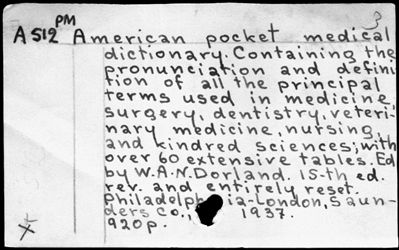 3
PM
A 512 American pocket medical
dictionary. Containing the
pronunciation and defini
tion of all the principal
terms used in medicine,
surgery, dentistry, veteri-
nary medicine, nursing,
and kindred sciences; with
over 60 extensive tables. Ed
by W.A.N. Dorland. 15-th ed.
rev. and entirely reset.
Philadelphia-London, Saun-
ders Co., 1937.
920p.